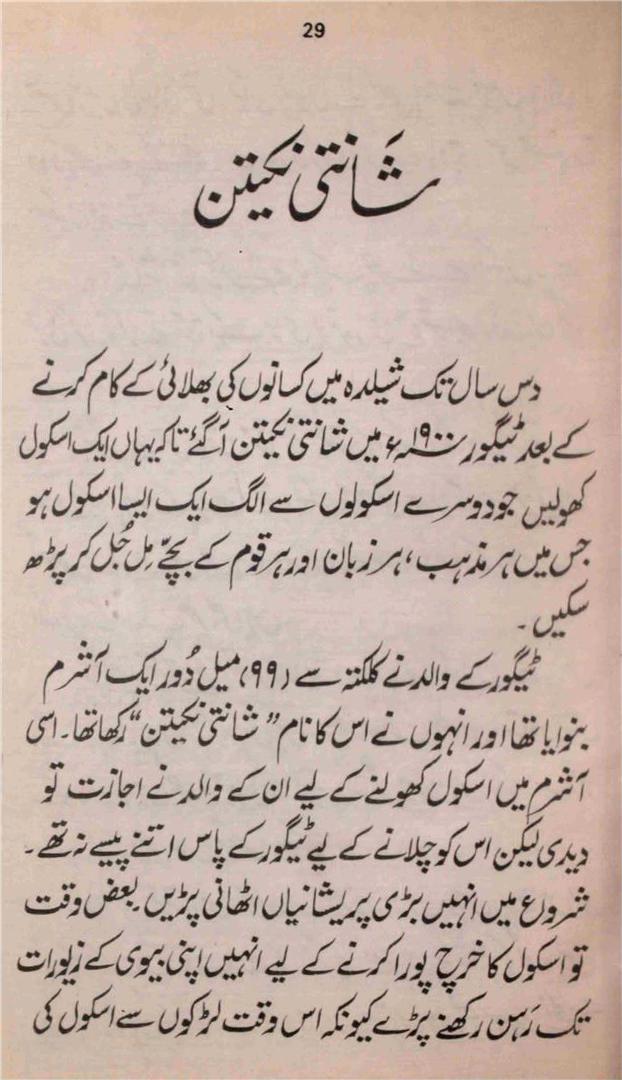 29
شانتی نکیتن
دس سال تک شیلدہ میں کسانوں کی بھلائی کے کام کرنے
کے بعد ٹیگور ۱۹۰۰ء میں شانتی نکیتن آ گئے تاکہ یہاں ایک اسکول
کھولیں جو دوسرے اسکولوں سے الگ ایک ایسا اسکول ہو
جس میں ہر مذہب، ہر زبان اور ہر قوم کے بچّے مِل جُل کر پڑھ
سکیں۔
ٹیگور کے والد نے کلکتہ سے (۹۹) میل دُور ایک آشرم
بنوایا تھا اور انہوں نے اس کا نام ”شانتی نکیتن“ رکھا تھا۔ اسی
آشرم میں اسکول کھولنے کے لیے ان کے والد نے اجازت تو
دیدی لیکن اس کو چلانے کے لیے ٹیگور کے پاس اتنے پیسے نہ تھے۔
شروع میں انہیں بڑی پریشانیاں اٹھانی پڑیں۔ بعض وقت
تو اسکول کا خرچ پورا کرنے کے لیے انہیں اپنی بیوی کے زیورات
تک رَہن رکھنے پڑے کیونکہ اس وقت لڑکوں سے اسکول کی